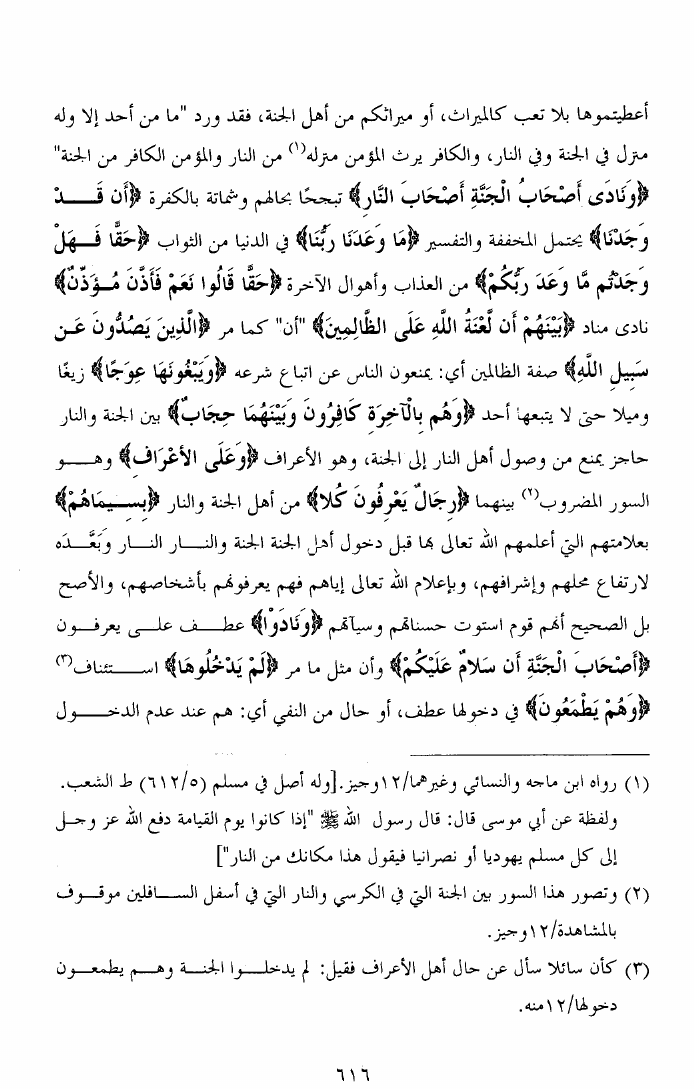 أعطيتموها بلا تعب كالميراث، أو ميراثكم من أهل الجنة، فقد ورد "ما من أحد إلا وله
منزل في الجنة وفي النار، والكافر يرث المؤمن منزله(١) من النار والمؤمن الكافر من الجنة"
﴿وَنَادَى أَصْحَابُ الْجَنَّةِ أَصْحَابَ النَّارِ﴾ تبجحًا بحالهم وشماتة بالكفرة ﴿أَن قَــــدْ
وَجَدْنَا﴾ يحتمل المخففة والتفسير ﴿مَا وَعَدَنَا رَبُّنَا﴾ في الدنيا من الثواب ﴿حَقًّا فَـهَلْ
وَجَدْتُم مَّا وَعَدَ رَبُّكُمْ﴾ من العذاب وأهوال الآخرة ﴿حَقًّا قَالُوا نَعَمْ فَأَذَّنَ مُـؤَذِّنٌ﴾
نادى مناد ﴿بَيْنَهُمْ أَن لَّعْنَةُ اللَّهِ عَلَى الظَّالِمِينَ﴾ "أن" كما مر ﴿الَّذِينَ يَصُدُّونَ عَـن
سَبِيلِ اللَّهِ﴾ صفة الظالمين أي: يمنعون الناس عن اتباع شرعه ﴿وَيَبْغُونَهَا عِوَجًا﴾ زيغًا
وميلا حتى لا يتبعها أحد ﴿وَهُم بِالْآخِرَةِ كَافِرُونَ وَبَيْنَهُمَا حِجَابٌ﴾ بين الجنة والنار
حاجز يمنع من وصول أهل النار إلى الجنة، وهو الأعراف ﴿وَعَلَى الأَعْرَافِ﴾ وهــو
السور المضروب(٢) بينهما ﴿رِجَالٌ يَعْرِفُونَ كُلا﴾ من أهل الجنة والنار ﴿بِسِـيمَاهُمْ﴾
بعلامتهم التي أعلمهم الله تعالى بها قبل دخول أهل الجنة الجنة والنــار النــار وَبَعَّــدَه
لارتفاع محلهم وإشرافهم، وبإعلام الله تعالى إياهم فهم يعرفونهم بأشخاصهم، والأصح
بل الصحيح أنهم قوم استوت حسناتهم وسيآتهم ﴿وَنَادَوْا﴾ عطــف علــى يعرفــون
﴿أَصْحَابَ الْجَنَّةِ أَن سَلامٌ عَلَيْكُمْ﴾ وأن مثل ما مر ﴿لَمْ يَدْخُلُوهَا﴾ اســـتئناف(٣)
﴿وَهُمْ يَطْمَعُونَ﴾ في دخولها عطف، أو حال من النفي أي: هم عند عدم الدخـــول
(١) رواه ابن ماجه والنسائي وغيرهما/١٢وجيز.[وله أصل في مسلم (٦١٢/٥) ط الشعب.
ولفظة عن أبي موسى قال: قال رسول الله ﷺ "إذا كانوا يوم القيامة دفع الله عز وجـل
إلى كل مسلم يهوديا أو نصرانيا فيقول هذا مكانك من النار"]
(٢) وتصور هذا السور بين الجنة التي في الكرسي والنار التي في أسفل الســافلين موقــوف
بالمشاهدة/١٢وجيز.
(٣) كأن سائلا سأل عن حال أهل الأعراف فقيل: لم يدخلــوا الجنــة وهــم يطمعــون
دخولها/١٢منه.
٦١٦